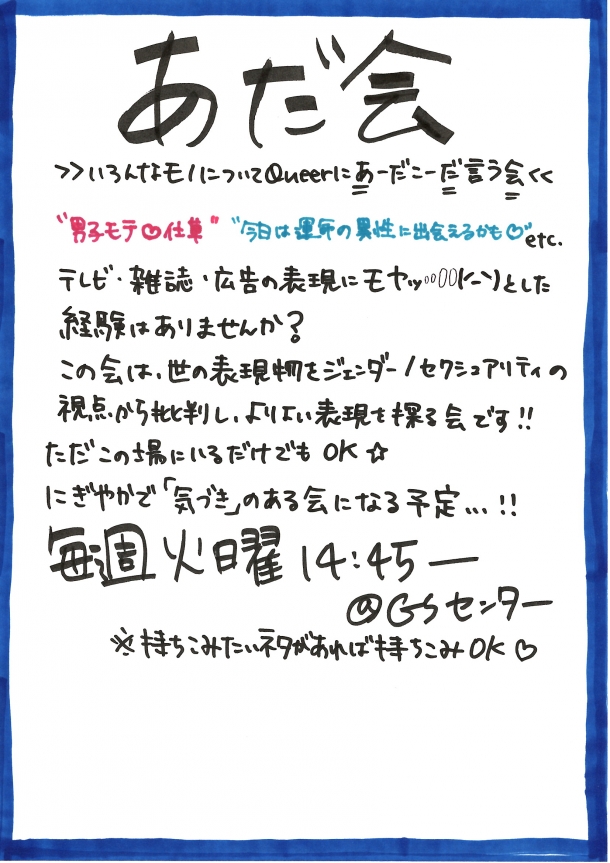 あだ会
>>いろんなモノについてQueerにあーだこーだ言う会<<
"男子モテ♡仕草" "今日は運命の異性に出会えるかも♡" etc.
テレビ・雑誌・広告の表現にモヤッ…とした
経験はありませんか?
この会は、世の表現物をジェンダー/セクシュアリティの
視点から批判し、よりよい表現を探る会です!!
ただこの場にいるだけでもOK☆
にぎやかで「気づき」のある会になる予定...!!
毎週火曜日14:45―
@GSセンター
※持ちこみたいネタがあれば持ちこみOK♡